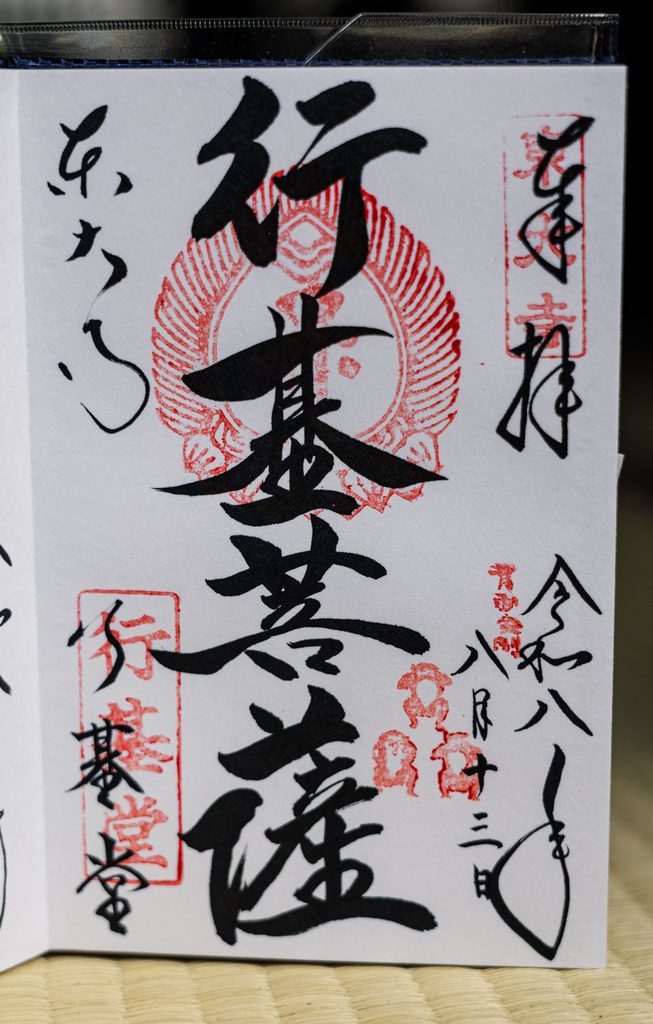 奉拝
東大寺
令和八年
八月十三日
青面金剛
行基菩薩
東大寺
行基堂
行基堂